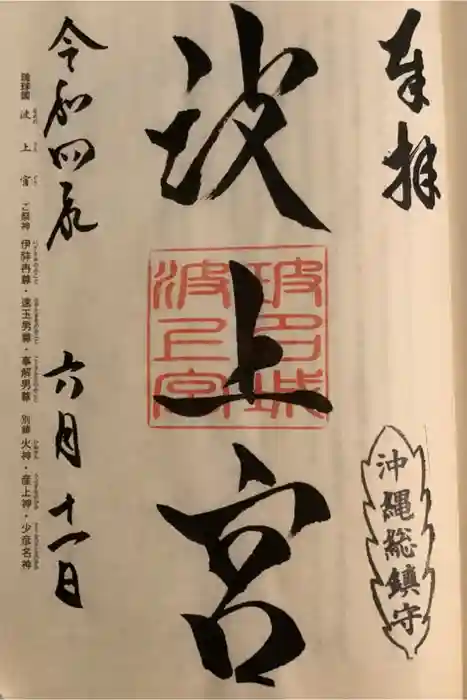 奉拝
沖縄総鎮守
波上宮
波上宮
令和四年 六月十一日
琉球國 波上宮 ご祭神 伊弉冉尊・速玉男尊・事解男尊 別鎮 火神・産土神・少彦名神